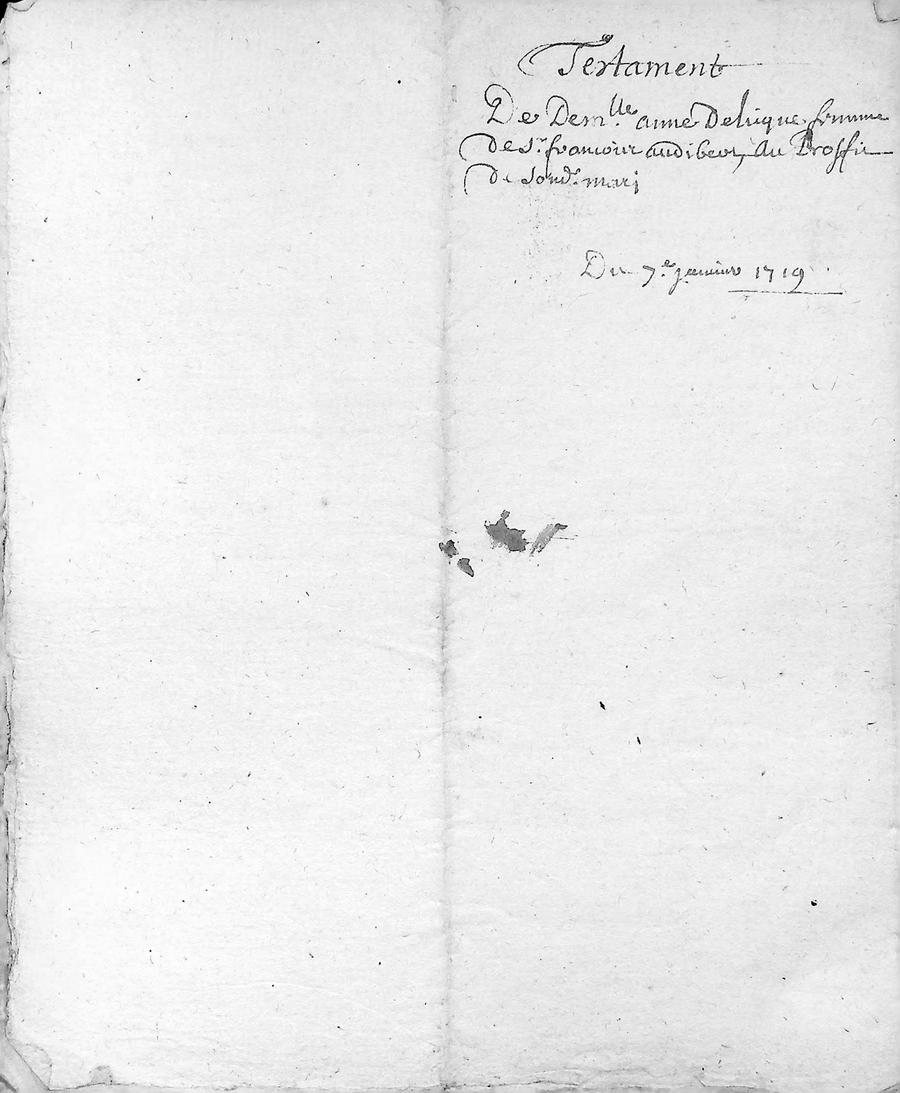 Testament
De Demlle anne Deluque femme
de Sr francois audibert, Au Proffit
de sond. mari
Du 7e janvier 1719